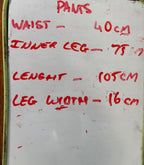 PANTS
WAIST - 40CM
INNER LEG - 75 M
LENGHT - 105CM
LEG WIDTH - 16 CM